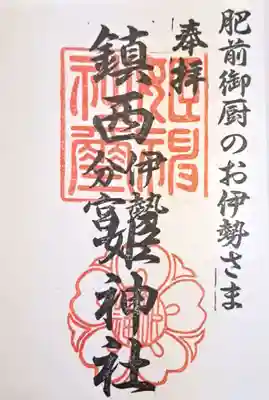 肥前御厨のお伊勢さま
奉拝
鎮西伊勢分宮
姫神社